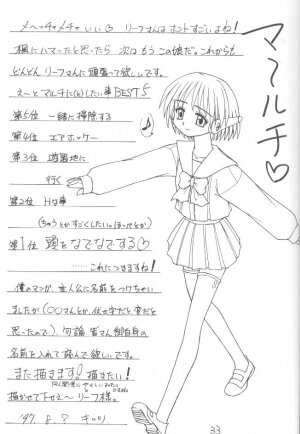 メーッチャメチャいい♡ リーフさんはホントすごいよね!
楓にハマったと思ったら 次は もう この娘だ。これからも
どんどん リーフさんに頑張って欲しいです。
え〜と マルチに(と)したい事BEST5
第5位 一緒に掃除する
第4位 エアホッケー
第3位 遊園地に
行く
第2位 Hな事
(ちゅうとかすごくしたい。ほっぺとか)
第1位 頭をなでなでする♡
……これにつきますね!
僕のマンガ、主人公に名前をつけちゃい
ましたが(〇〇さんとか伏せ字だと変だと
思ったので)、勿論 皆さん御自身の
名前を入れて読んで欲しいです。
また描きます! 描きたい!
同人関係に やさしい みたい
描かせて下せえ〜 リーフ様。
'97. 8. ?
マールチ♡
♪
33